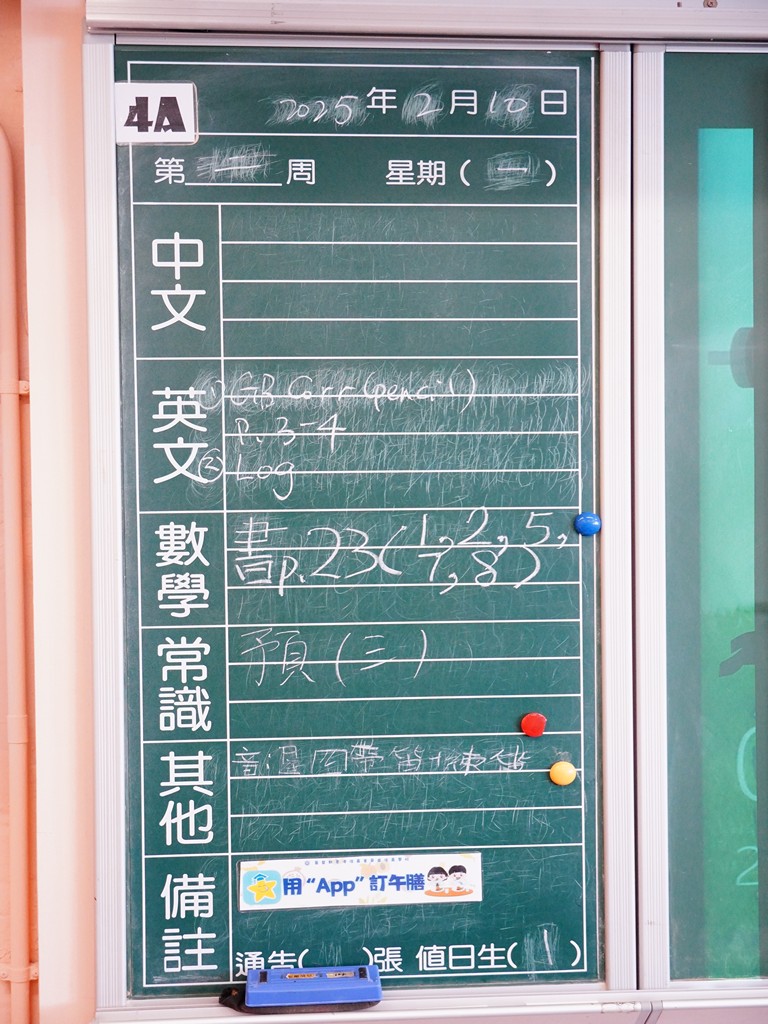 4A
2025年2月10日
第二周 星期(一)
中文
英文
① GB Corr (pencil)
p. 3-4
② Log
數學
書p.23(1, 2, 5,
7, 8)
常識
預(三)
其他
備註
用“App”訂午膳
通告( )張 值日生(1)